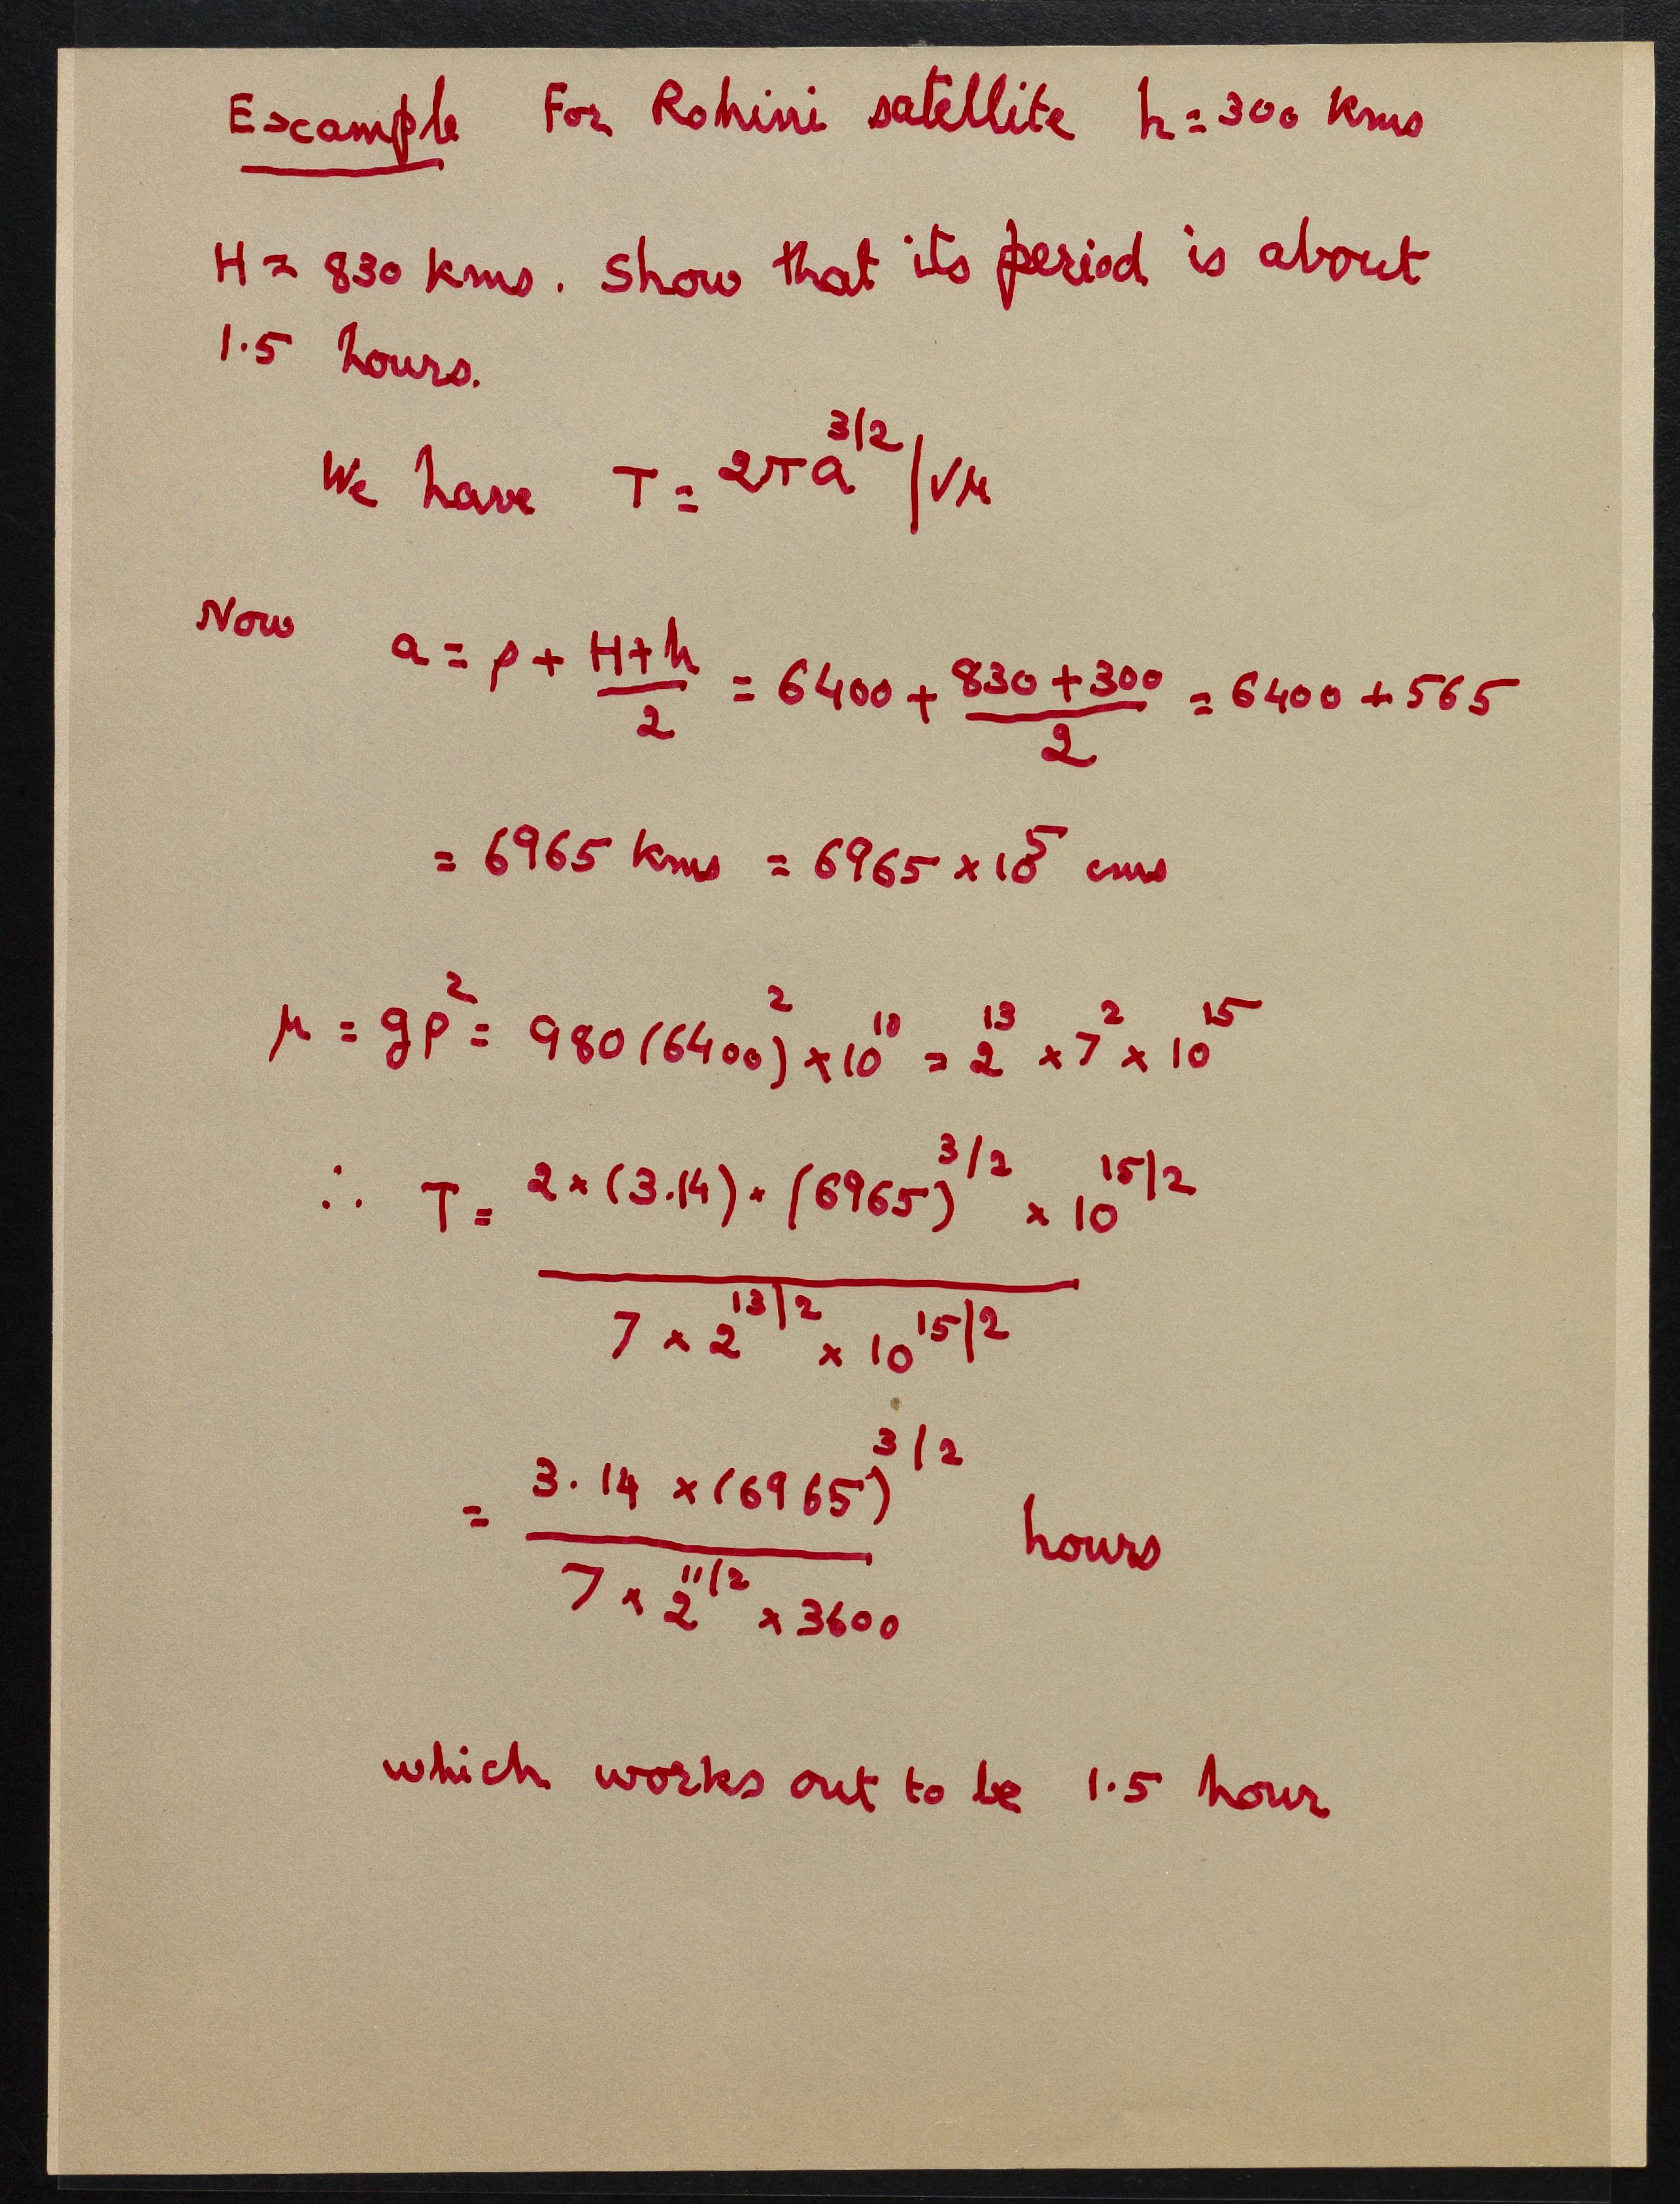 Example For Rohini satellite h = 300 Kms
H = 830 kms. Show that its period is about
1.5 hours.
We have T = 2πa^{3/2} / √μ
Now a = ρ + \frac{H+h}{2} = 6400 + \frac{830+300}{2} = 6400 + 565
= 6965 kms = 6965 × 10^5 cms
μ = gρ^2 = 980 (6400)^2 × 10^{10} = 2^{13} × 7^2 × 10^{15}
∴ T = \frac{2 × (3.14) × (6965)^{3/2} × 10^{15/2}}{7 × 2^{13/2} × 10^{15/2}}
= \frac{3.14 × (6965)^{3/2}}{7 × 2^{11/2} × 3600} hours
which works out to be 1.5 hour